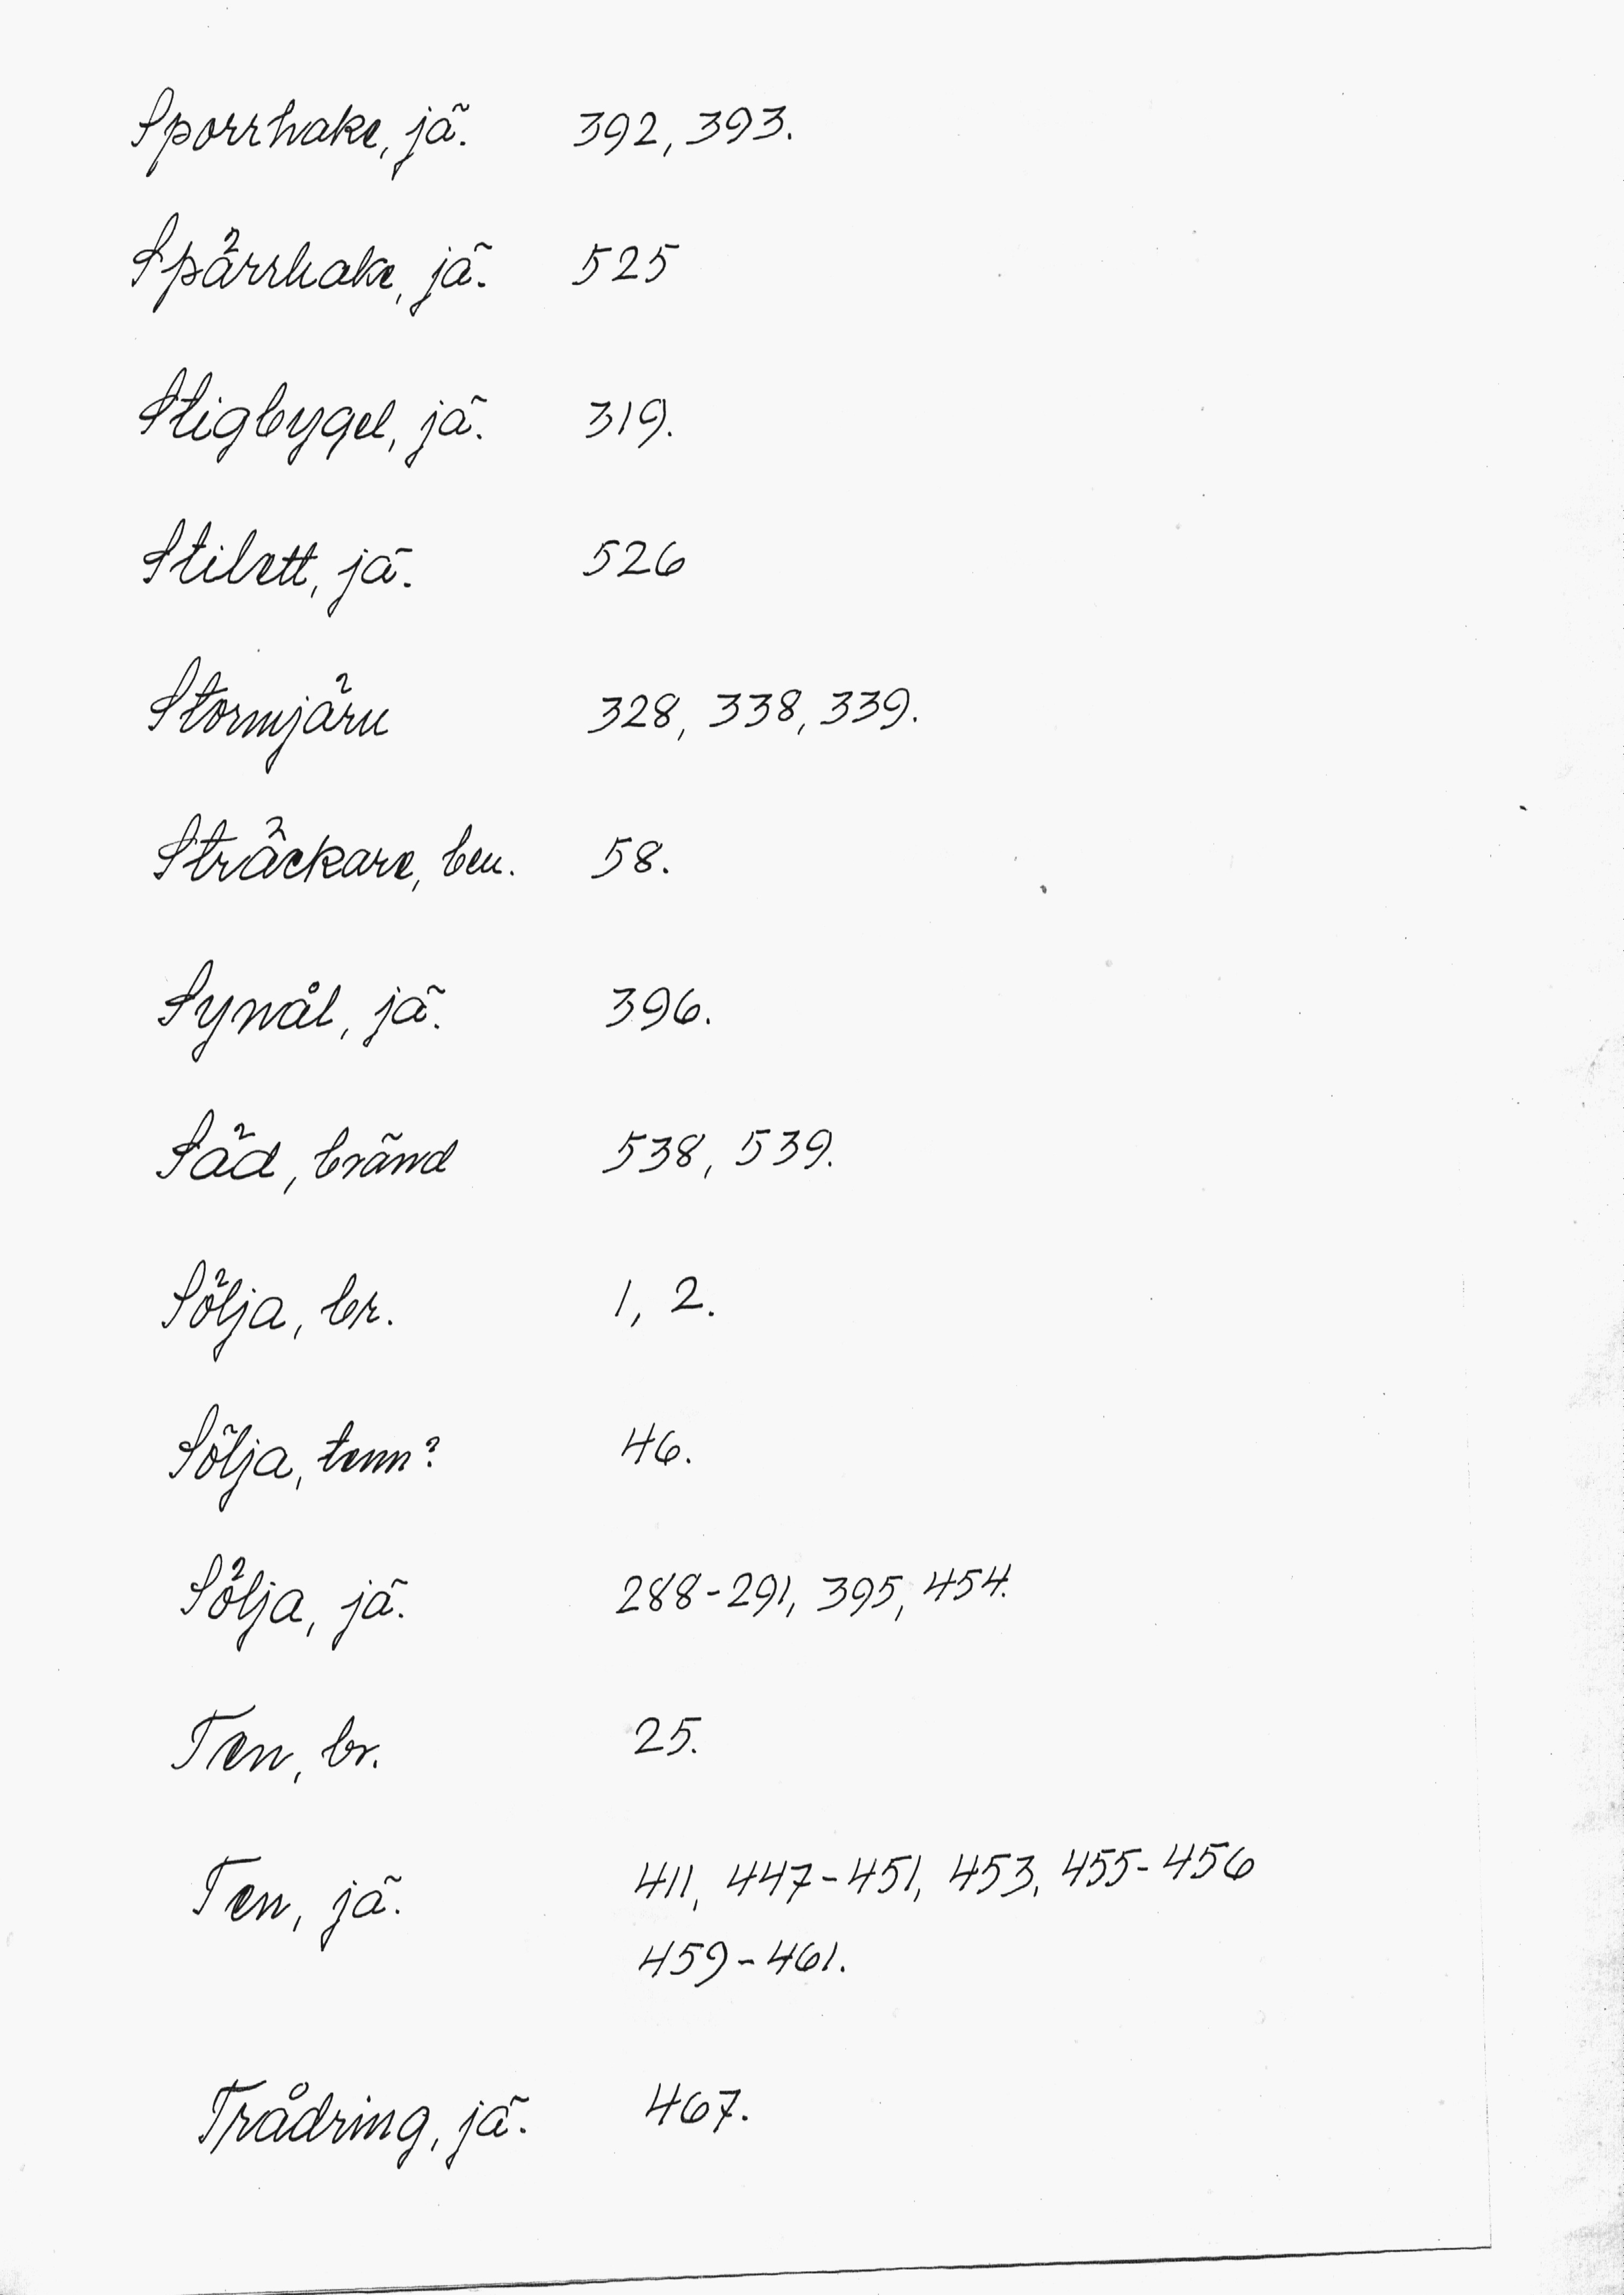 Sporrhake, jä. 392, 393.
Spärrhake, jä. 525
Stigbygel, jä. 319.
Stilett, jä. 526
Stormjärn 328, 338, 339.
Sträckare, ben. 58.
Synål, jä. 396.
Säd, bränd 538, 539.
Sölja, br. 1, 2.
Sölja, tenn? 46.
Sölja, jä. 288-291, 395, 454.
Ten, br. 25.
Ten, jä. 411, 447-451, 453, 455-456
459-461.
Trådring, jä. 467.